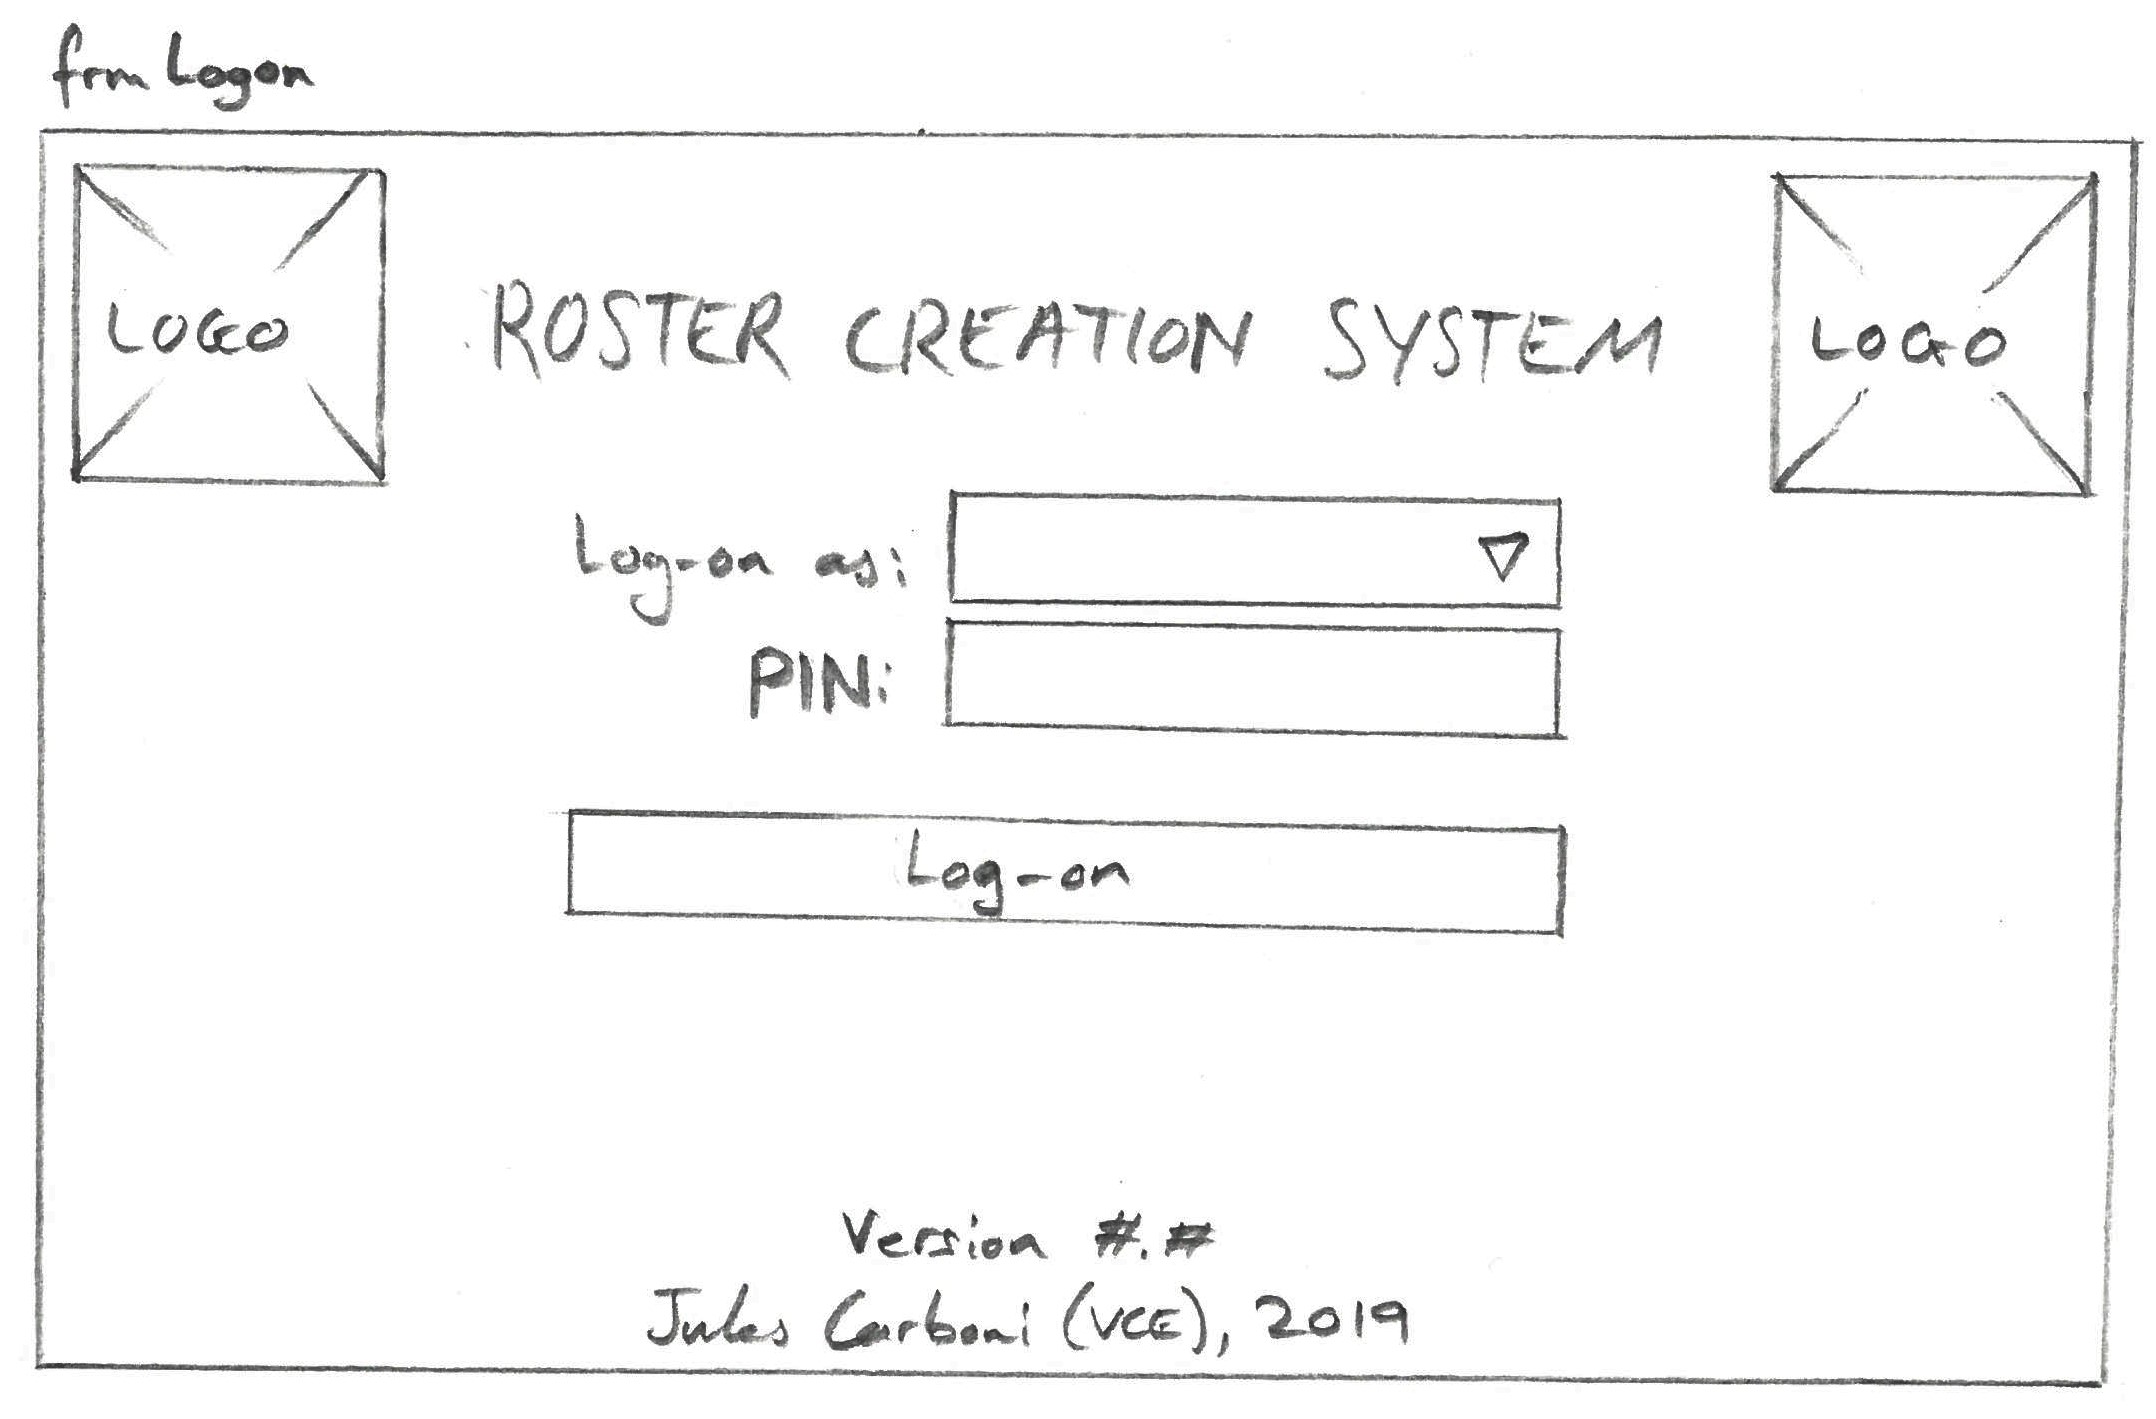 frm Logon
LOGO
ROSTER CREATION SYSTEM
LOGO
Log-on as:
PIN:
Log-on
Version #.#
Jules Carboni (VCE), 2019